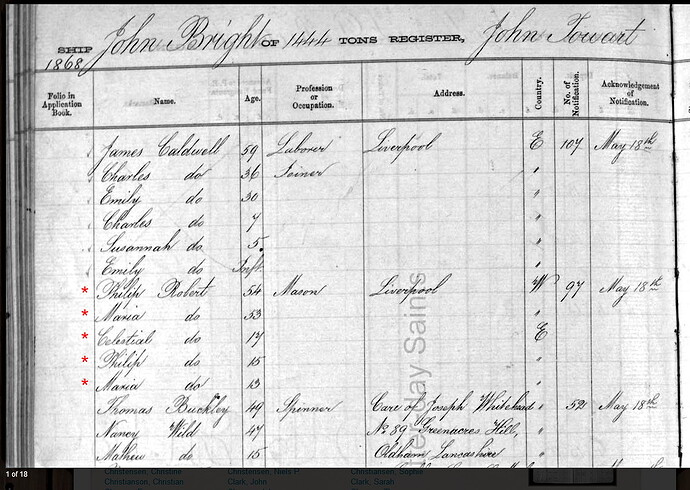 SHIP John Bright OF 1444 TONS REGISTER, John Towart
1868
Folio in Application Book. Name. Age. Profession or Occupation. Address. Country. No. of Notification. Acknowledgement of Notification.
James Caldwell 59 Laborer Liverpool E 107 May 18th
Charles do 36 Joiner "
Emily do 30 "
Charles do 7 "
Susannah do 5 "
Emily do Inft. "
* Philip Robert 54 Mason Liverpool W 97 May 18th
* Maria do 53 "
* Celestial do 17 E
* Philip do 15 "
* Maria do 13 "
Thomas Buckley 49 Spinner Care of Joseph Whitehead " 52 May 18th
Nancy Wild 47 No 89 Greenacres Hill, "
Mathew do 15 Oldham Lancashire "
er-day Saints
1 of 18
Christensen, Christine
Christianson, Christian
Christensen, Niels P.
Clark, John
Clark, Sarah